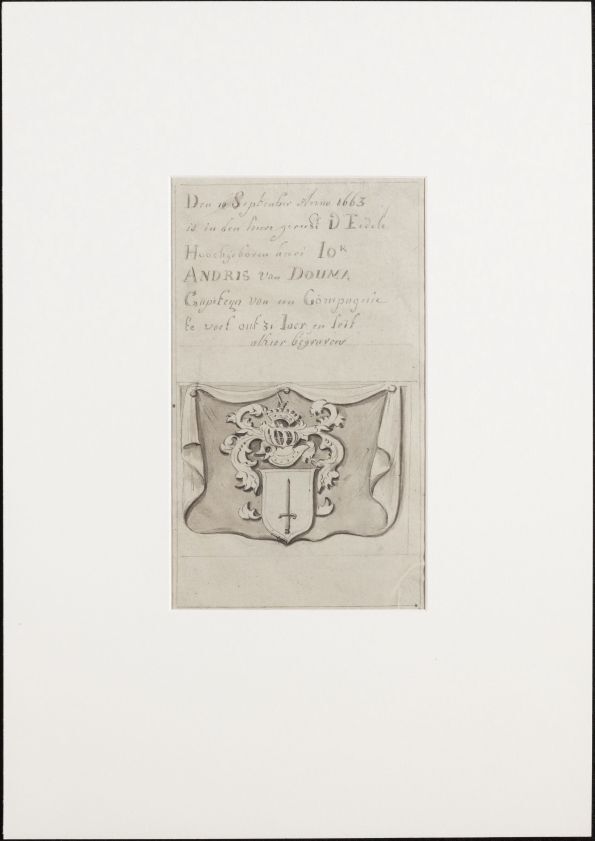 Den September Anno 1663
is in den heere gerust D Eedele
Hoochgeboren heere Iok
ANDRIS van DOUMA
Capiteyn van een Compagnie
te voet out 31 Iaer en leit
alhier begraven